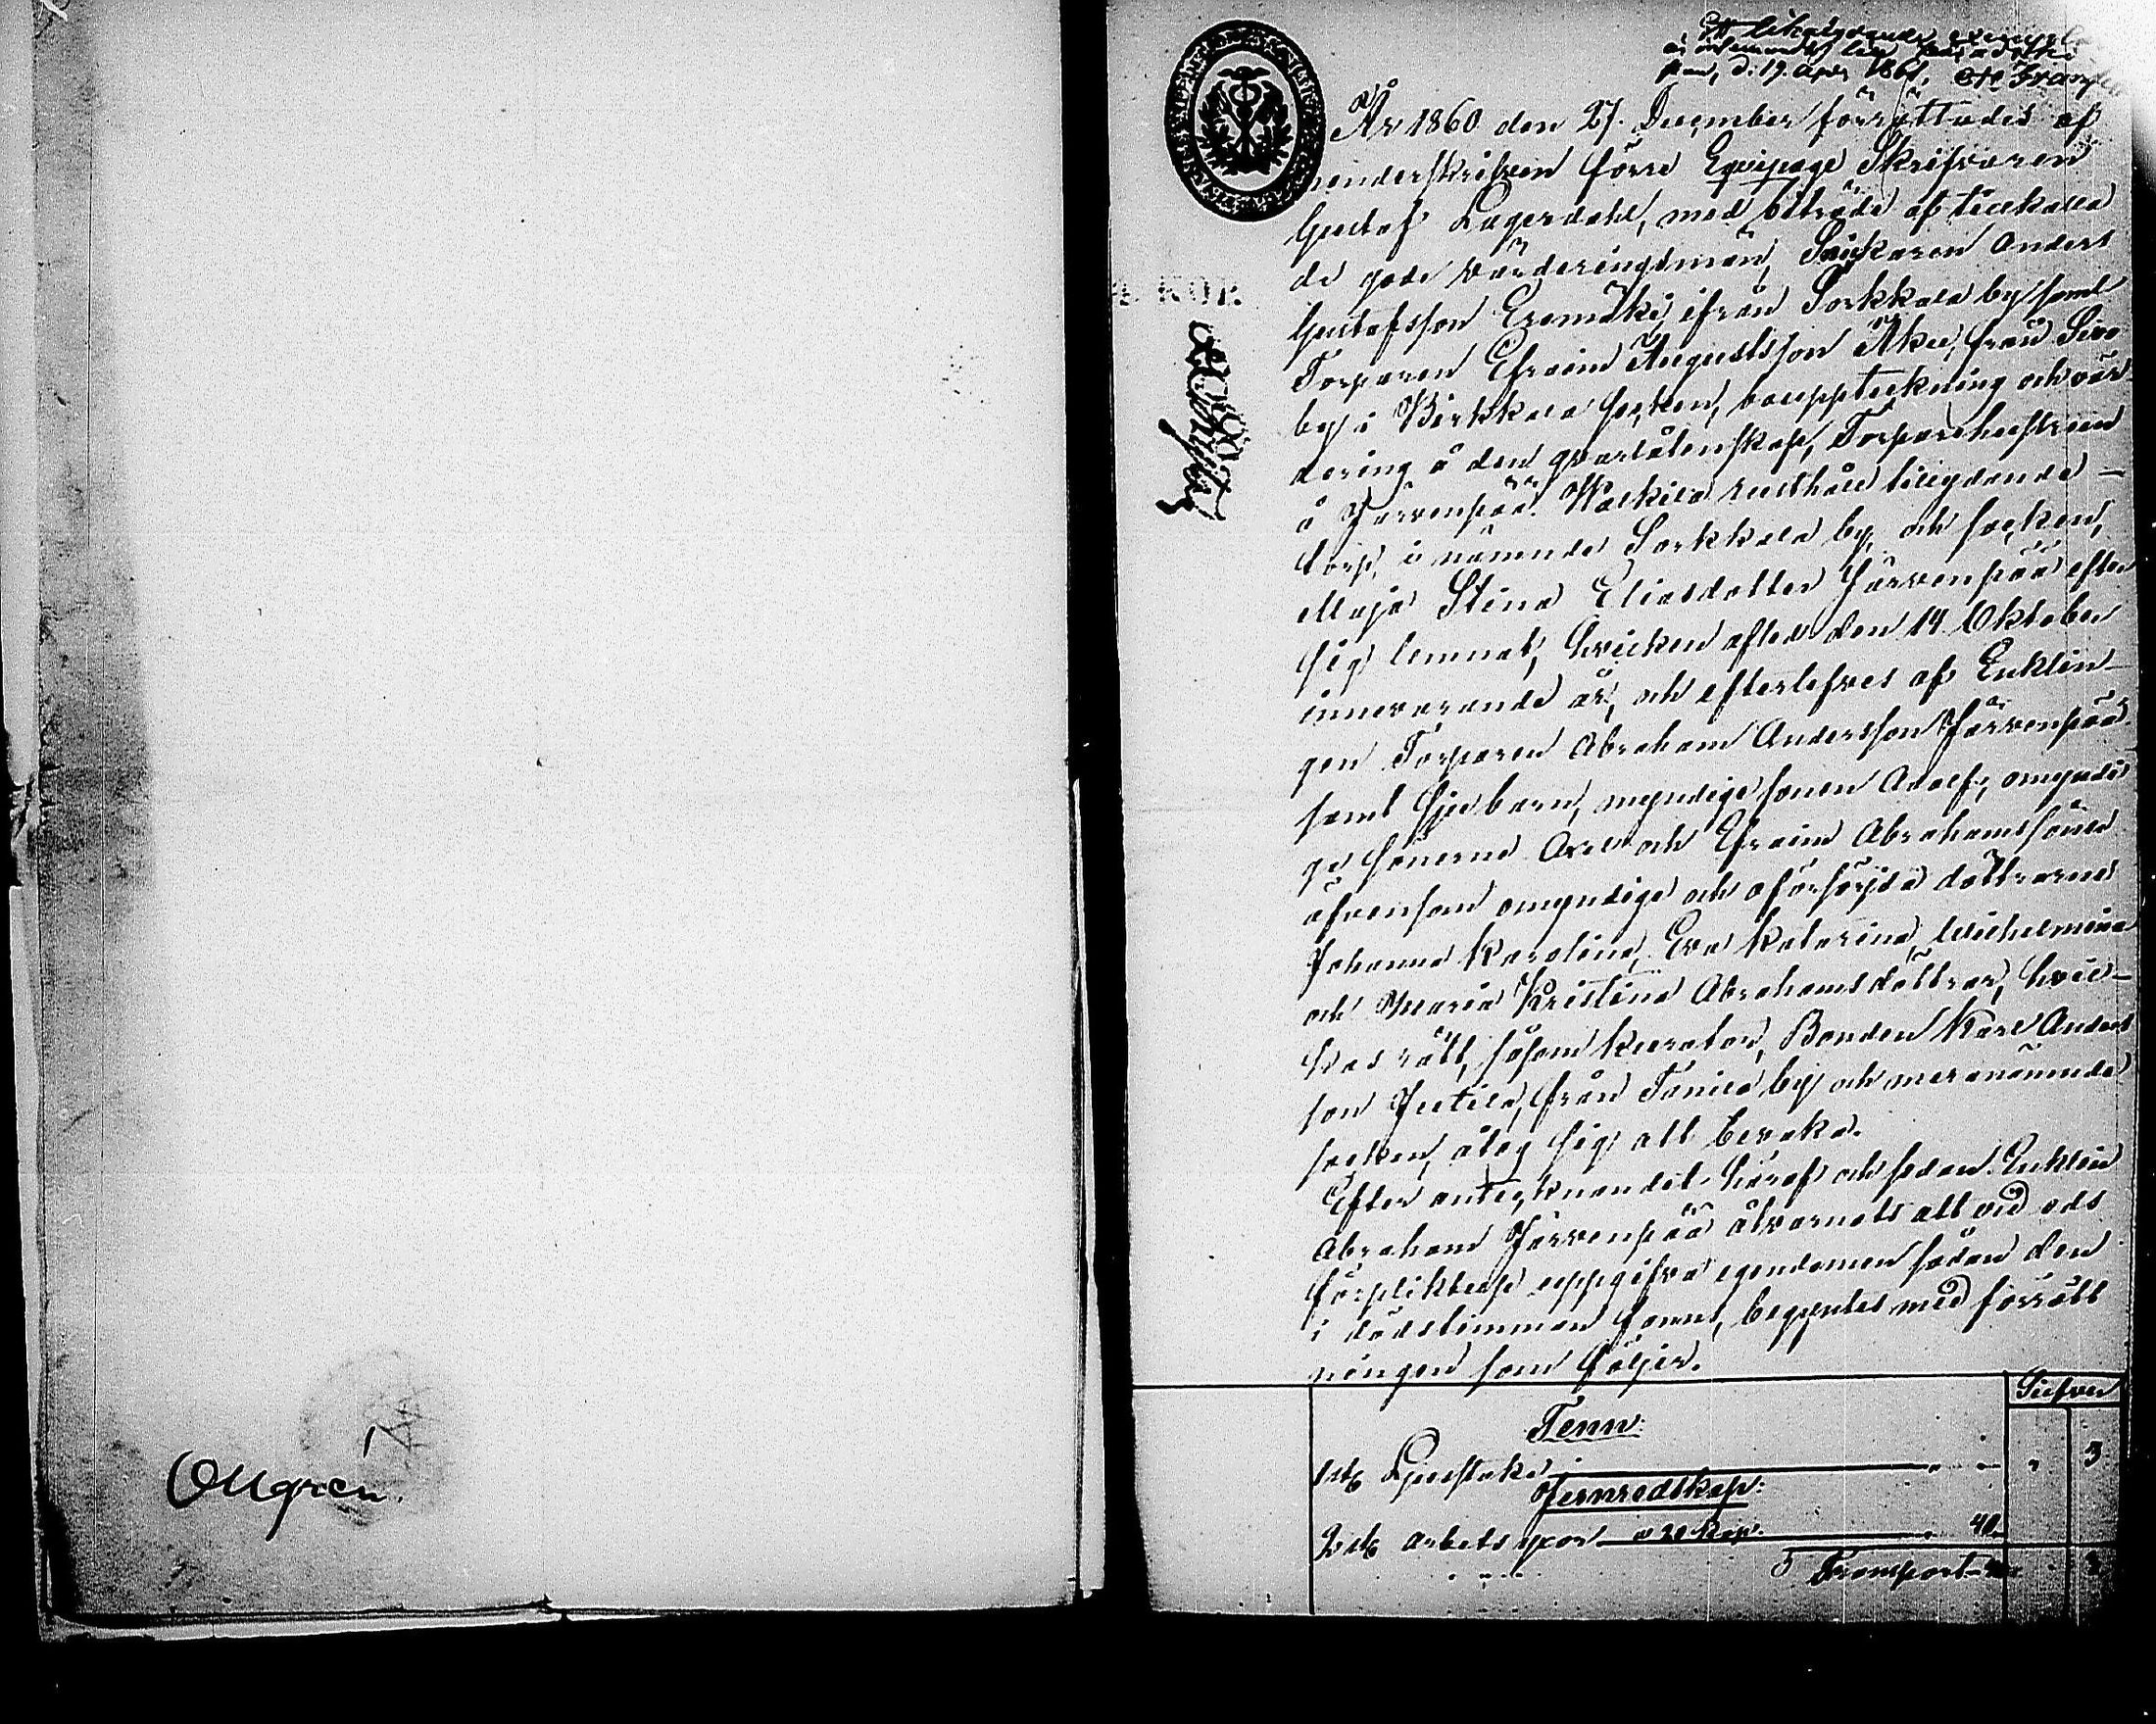 Öllgren.
Ett likalydande exempla
är inlemnadt
d: 19 April 1861.
År 1860 den 27. December förrättades af
underskrifven förre Eqvipage Skrifvaren
Gustaf Lagerdahl, med biträde af tillkalla
de gode värderingsmän, Snickaren Anders
Gustafsson Eromäki ifrån Sorkkala by samt
Torparen Efraim Augustsson Åkee, från Sivo
by i Birkkala socken, bouppteckning och vär
dering å den qvarlåtenskap, Torparehustrun
å Järvenpää Walkila rusthåll tillydande
torp, i nämnde Sorkkala by och socken,
Maja Stina Eliasdotter Järvenpää efter
sig lemnat, hvilken afled den 14 Oktober
innevarande år, och efterlefves af Enklin-
gen Torparen Abraham Andersson Järvenpää
samt sju barn, myndige sonen Adolf, omyndi
ge sönerne Axel och Efraim Abrahamssöner
äfvensom omyndige och oförsörjda döttrarne
Johanna Karolina, Eva Katarina, Wilhelmina
och Maria Kristina Abrahamsdöttrar, hvil-
kas rätt, såsom Kurator, Bonden Karl Anders
son Jutila, från Tanila by och meranämnde
socken, åtog sig att bevaka.
Efter antecknandet häraf och sedan Enklin
Abraham Järvenpää åtvarnats att vid eds
förpliktelse uppgifva egendomen sådan den
i dödstimman fanns, begyntes med förrätt
ningen som följer.
Silfver
Tenn:
1 st. Ljusstake 3
Jernredskap:
2 st. arbets yxor a 20 kop. 40
Transport